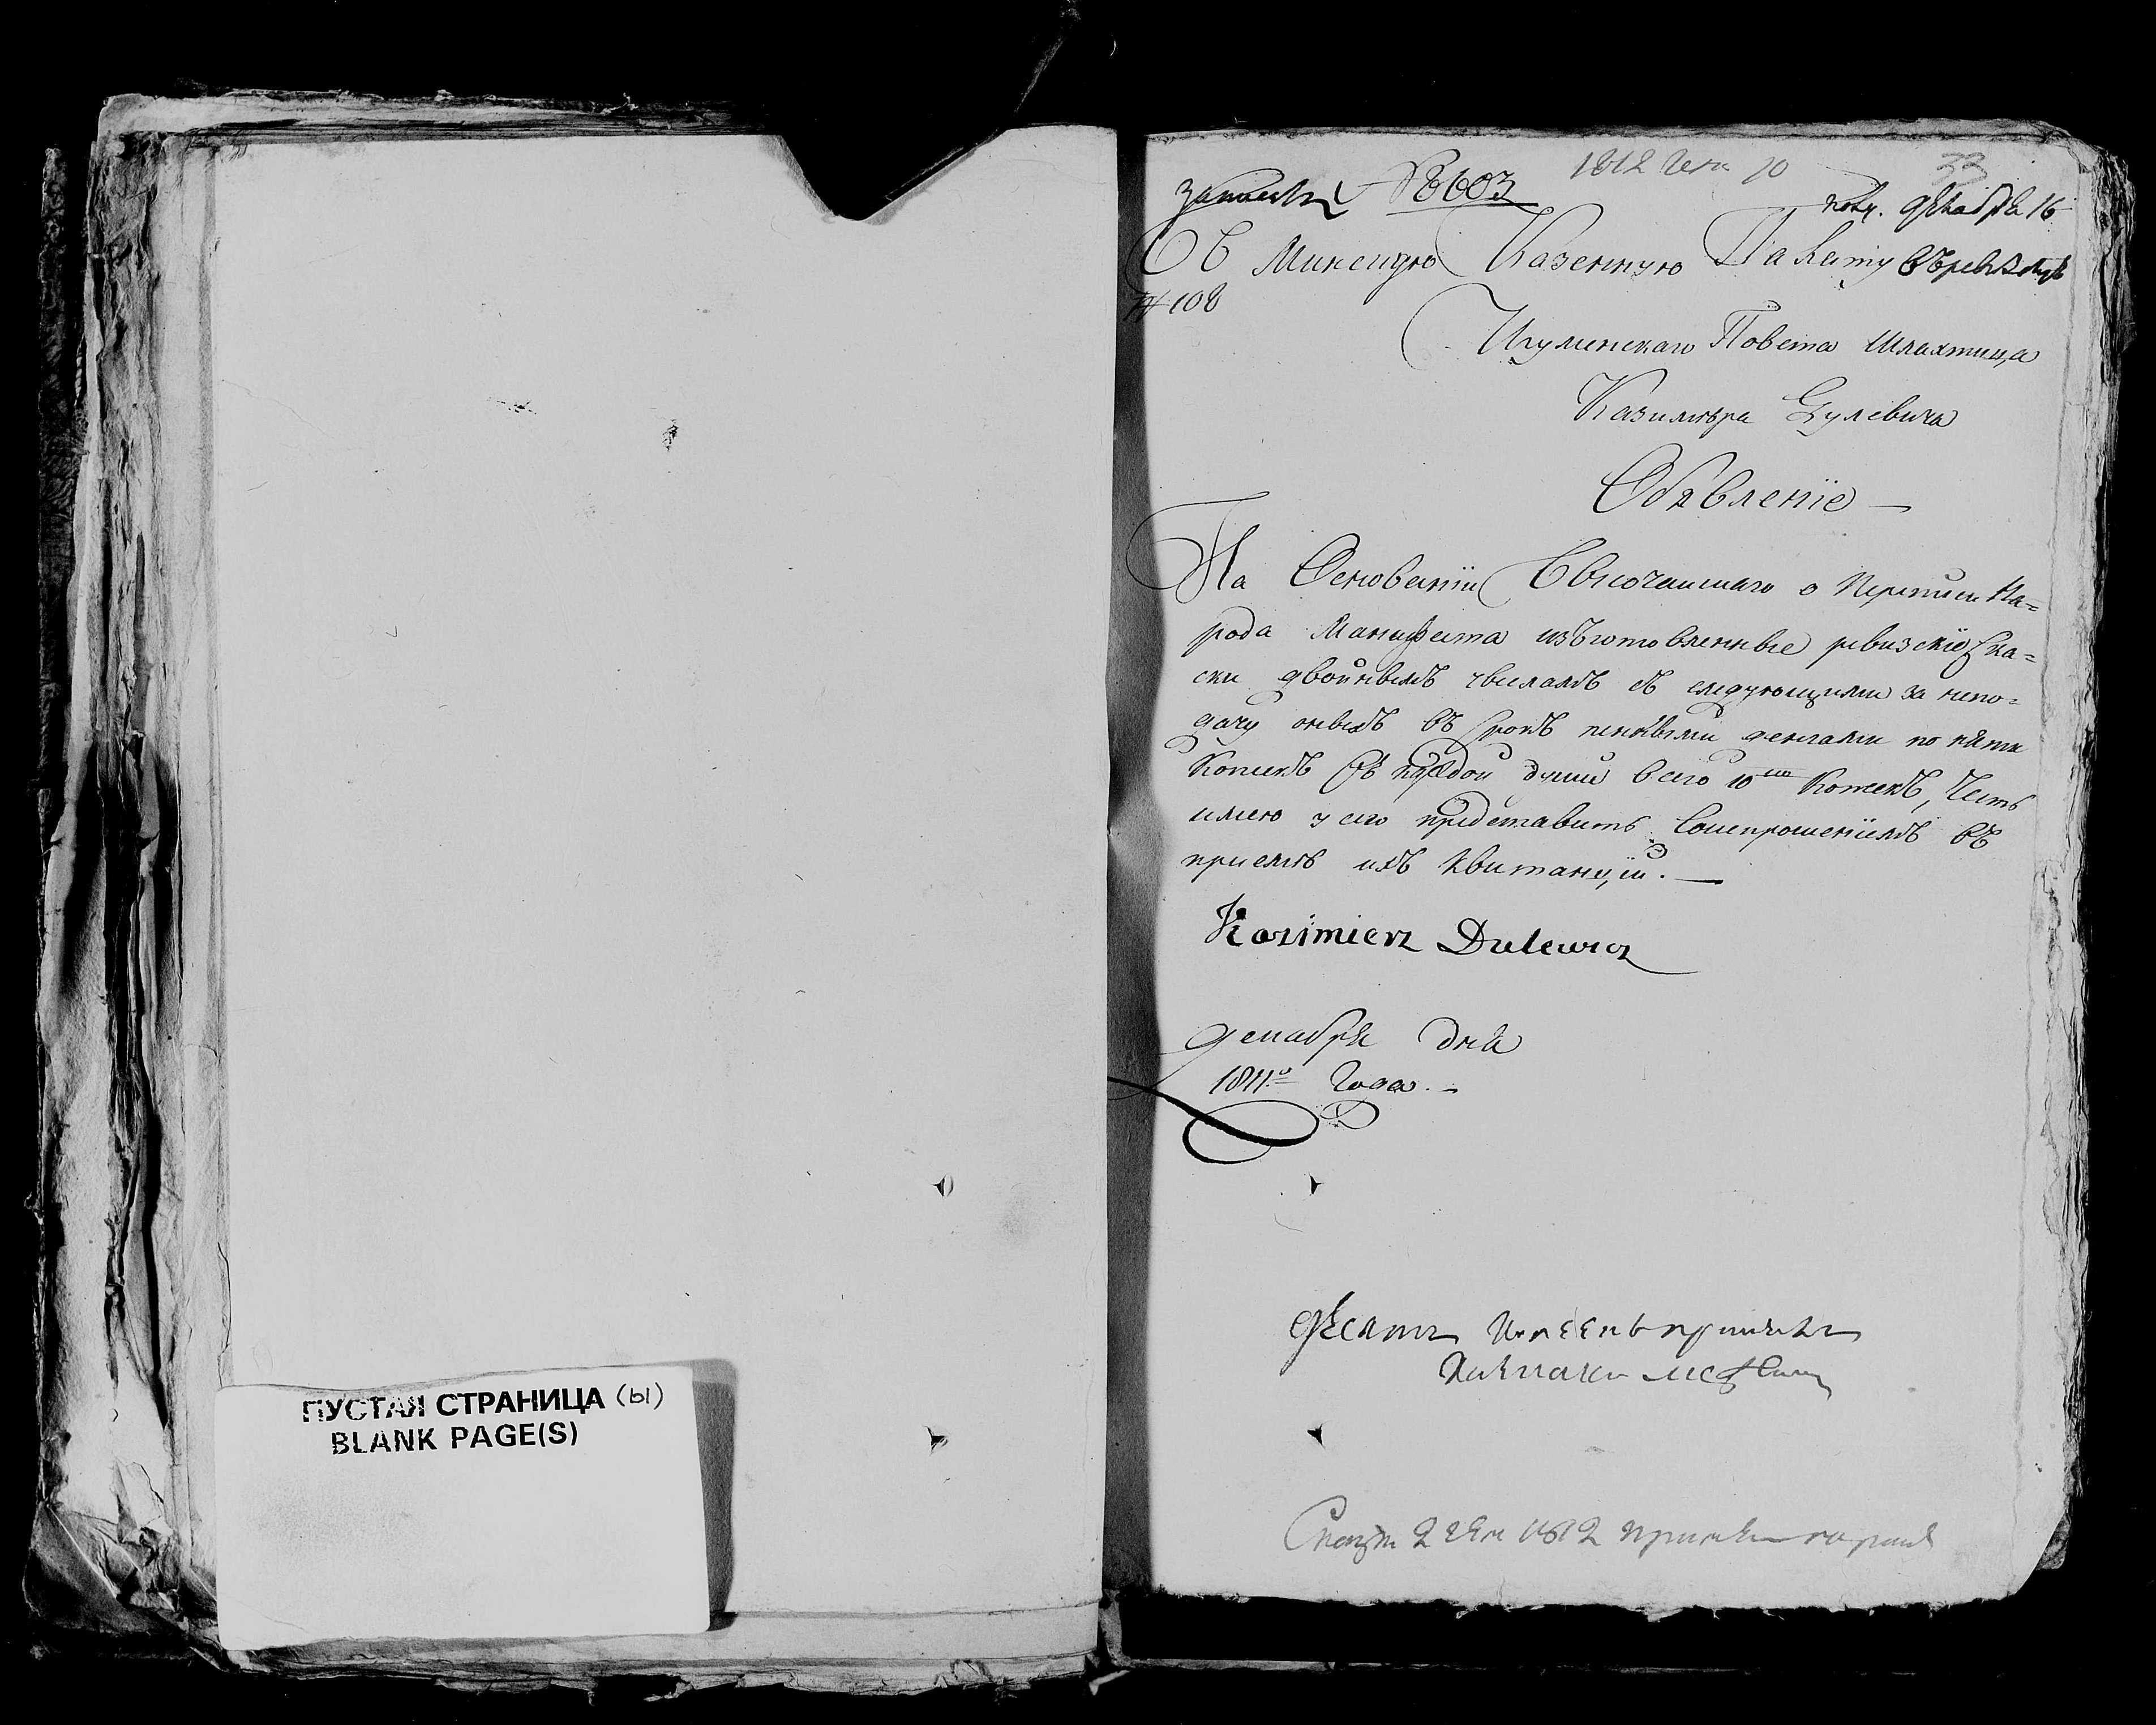 ПУСТАЯ СТРАНИЦА (ы)
BLANK PAGE(S)
33
8603
декабря 16
Въ Минскую Казенную Палату
№ 108
Игуменскаго Повета шляхтица
Казимѣра Дулевича
Обявленіе —
На Основаніи Высочаишаго о Переписи На=
рода Манифеста изъготовленные ревизскіе Ска=
ски двойнымъ числамъ съ следующими за непо=
дачу оныхъ въ срокъ пенными денгами по пяти
Копиекъ съ каждой души всего 10 Копекъ, Честь
имею у сего представить Сиспрошеніемъ въ
приемѣ ихъ квитанціи. —
Kazimierz Dulewicz
декабря дня
1811.º Года. —
десять
1812